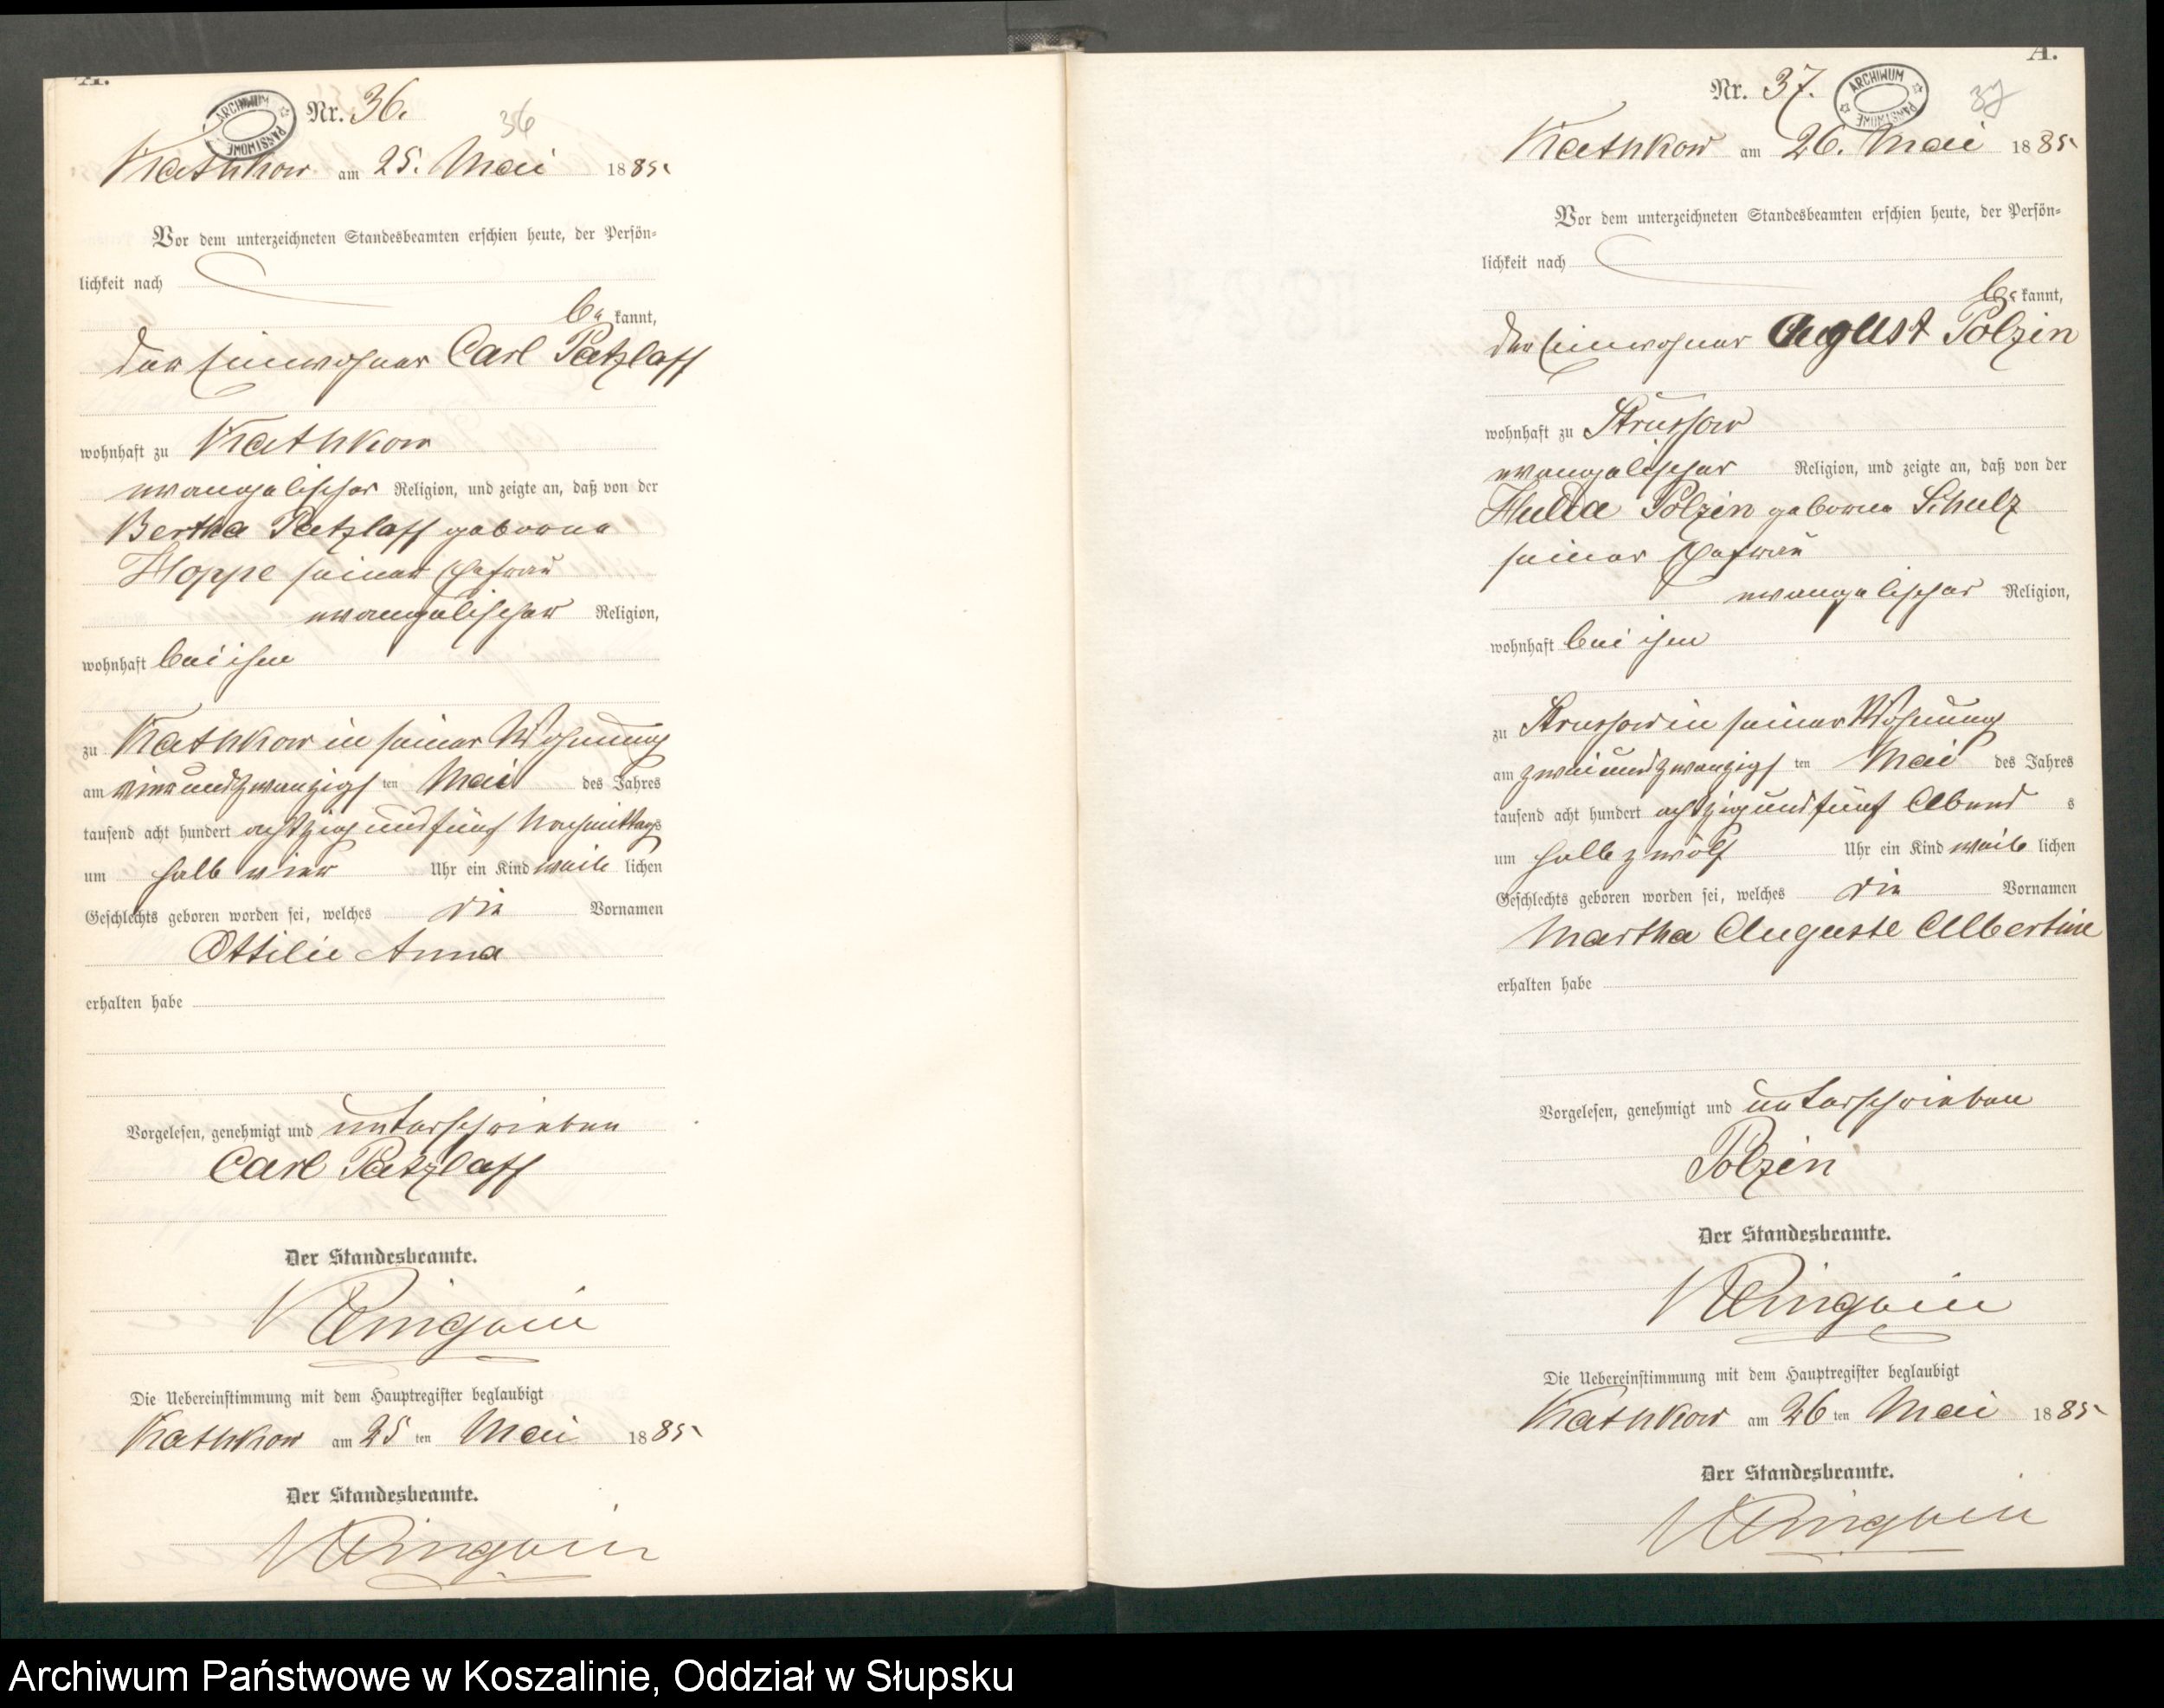 A.
ARCHIWUM PAŃSTWOWE
Nr. 36.
36
Kathkow am 25. Mai 1885
Vor dem unterzeichneten Standesbeamten erschien heute, der Persön-
lichkeit nach
be kannt,
der Einwohner Carl Patzlaff
wohnhaft zu Kathkow
evangelischer Religion, und zeigte an, daß von der
Bertha Patzlaff geborne
Hoppe seiner Ehefrau
evangelischer Religion,
wohnhaft bei ihm
zu Kathkow in seiner Wohnung
am vierundzwanzigs ten Mai des Jahres
tausend acht hundert achtzig und fünf Nachmittags
um halb vier Uhr ein Kind weib lichen
Geschlechts geboren worden sei, welches die Vornamen
Ottilie Anna
erhalten habe
Vorgelesen, genehmigt und unterschrieben
Carl Patzlaff
Der Standesbeamte.
Die Uebereinstimmung mit dem Hauptregister beglaubigt
Kathkow am 25 ten Mai 1885
Der Standesbeamte.
A.
Nr. 37.
ARCHIWUM PAŃSTWOWE
37
Kathkow am 26. Mai 1885
Vor dem unterzeichneten Standesbeamten erschien heute, der Persön-
lichkeit nach
be kannt,
der Einwohner August Polzin
wohnhaft zu Strussow
evangelischer Religion, und zeigte an, daß von der
Hulda Polzin geborne Schulz
seiner Ehefrau
evangelischer Religion,
wohnhaft bei ihm
zu Strussow in seiner Wohnung
am zweiundzwanzigs ten Mai des Jahres
tausend acht hundert achtzig und fünf Abend s
um halb zwölf Uhr ein Kind weib lichen
Geschlechts geboren worden sei, welches die Vornamen
Martha Auguste Albertine
erhalten habe
Vorgelesen, genehmigt und unterschrieben
Polzin
Der Standesbeamte.
Die Uebereinstimmung mit dem Hauptregister beglaubigt
Kathkow am 26 ten Mai 1885
Der Standesbeamte.
Archiwum Państwowe w Koszalinie, Oddział w Słupsku